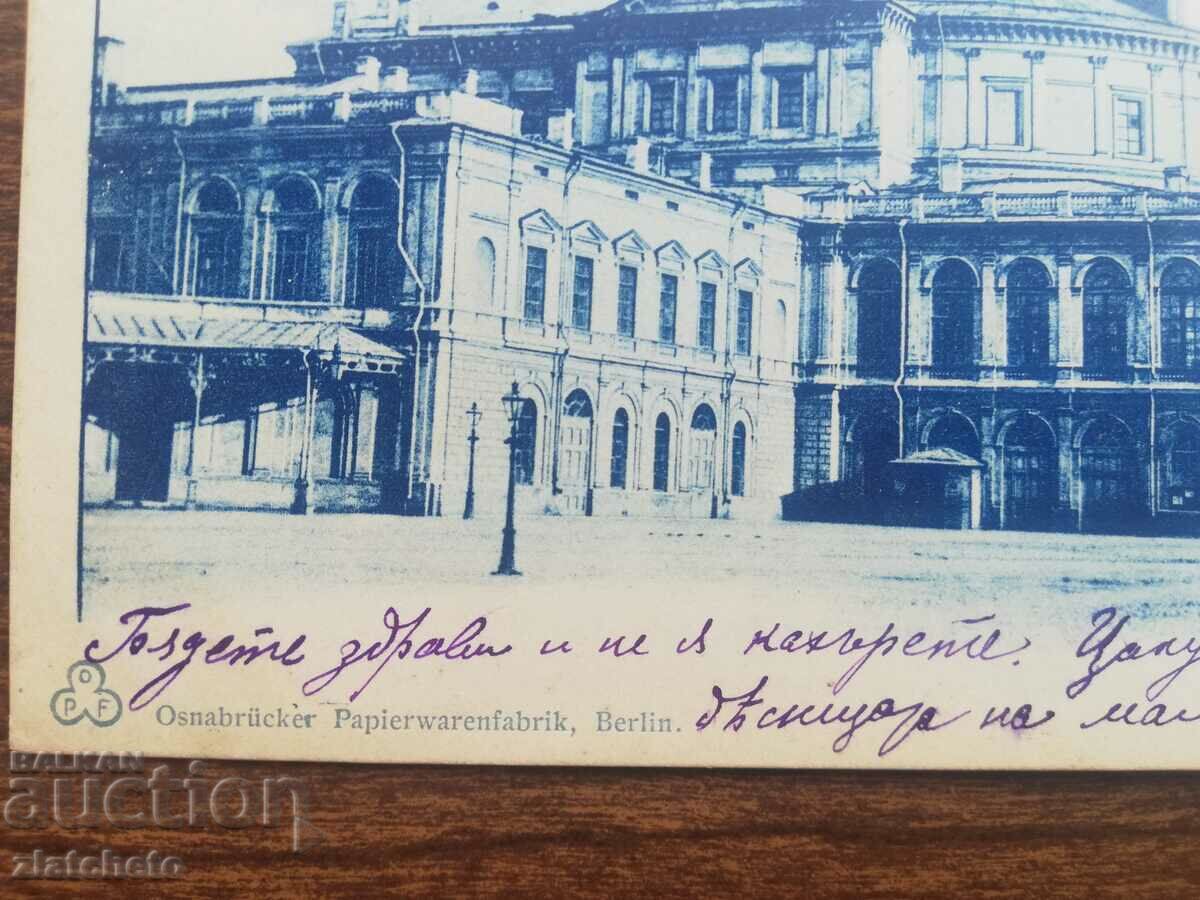 Бѫдете здрави и не я кахърете. Цалу
O
P F
Osnabrücker Papierwarenfabrik, Berlin.
дѣсницар на мам
BALKAN
auction
zlatcheto